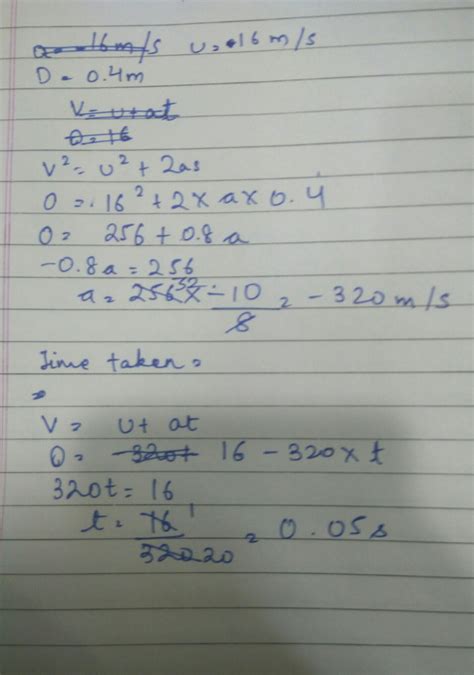 a = -16 m/s u = 16 m/s
D = 0.4m
V = u + at
0 = 16
V² = u² + 2as
0 = 16² + 2 x a x 0.4
0 = 256 + 0.8 a
-0.8a = 256
a = 256 32 x -10 / 8 = - 320 m/s
Time taken =
=
V = u + at
0 = 320t 16 - 320 x t
320t = 16
t = 16 1 / 320 20 = 0.05s